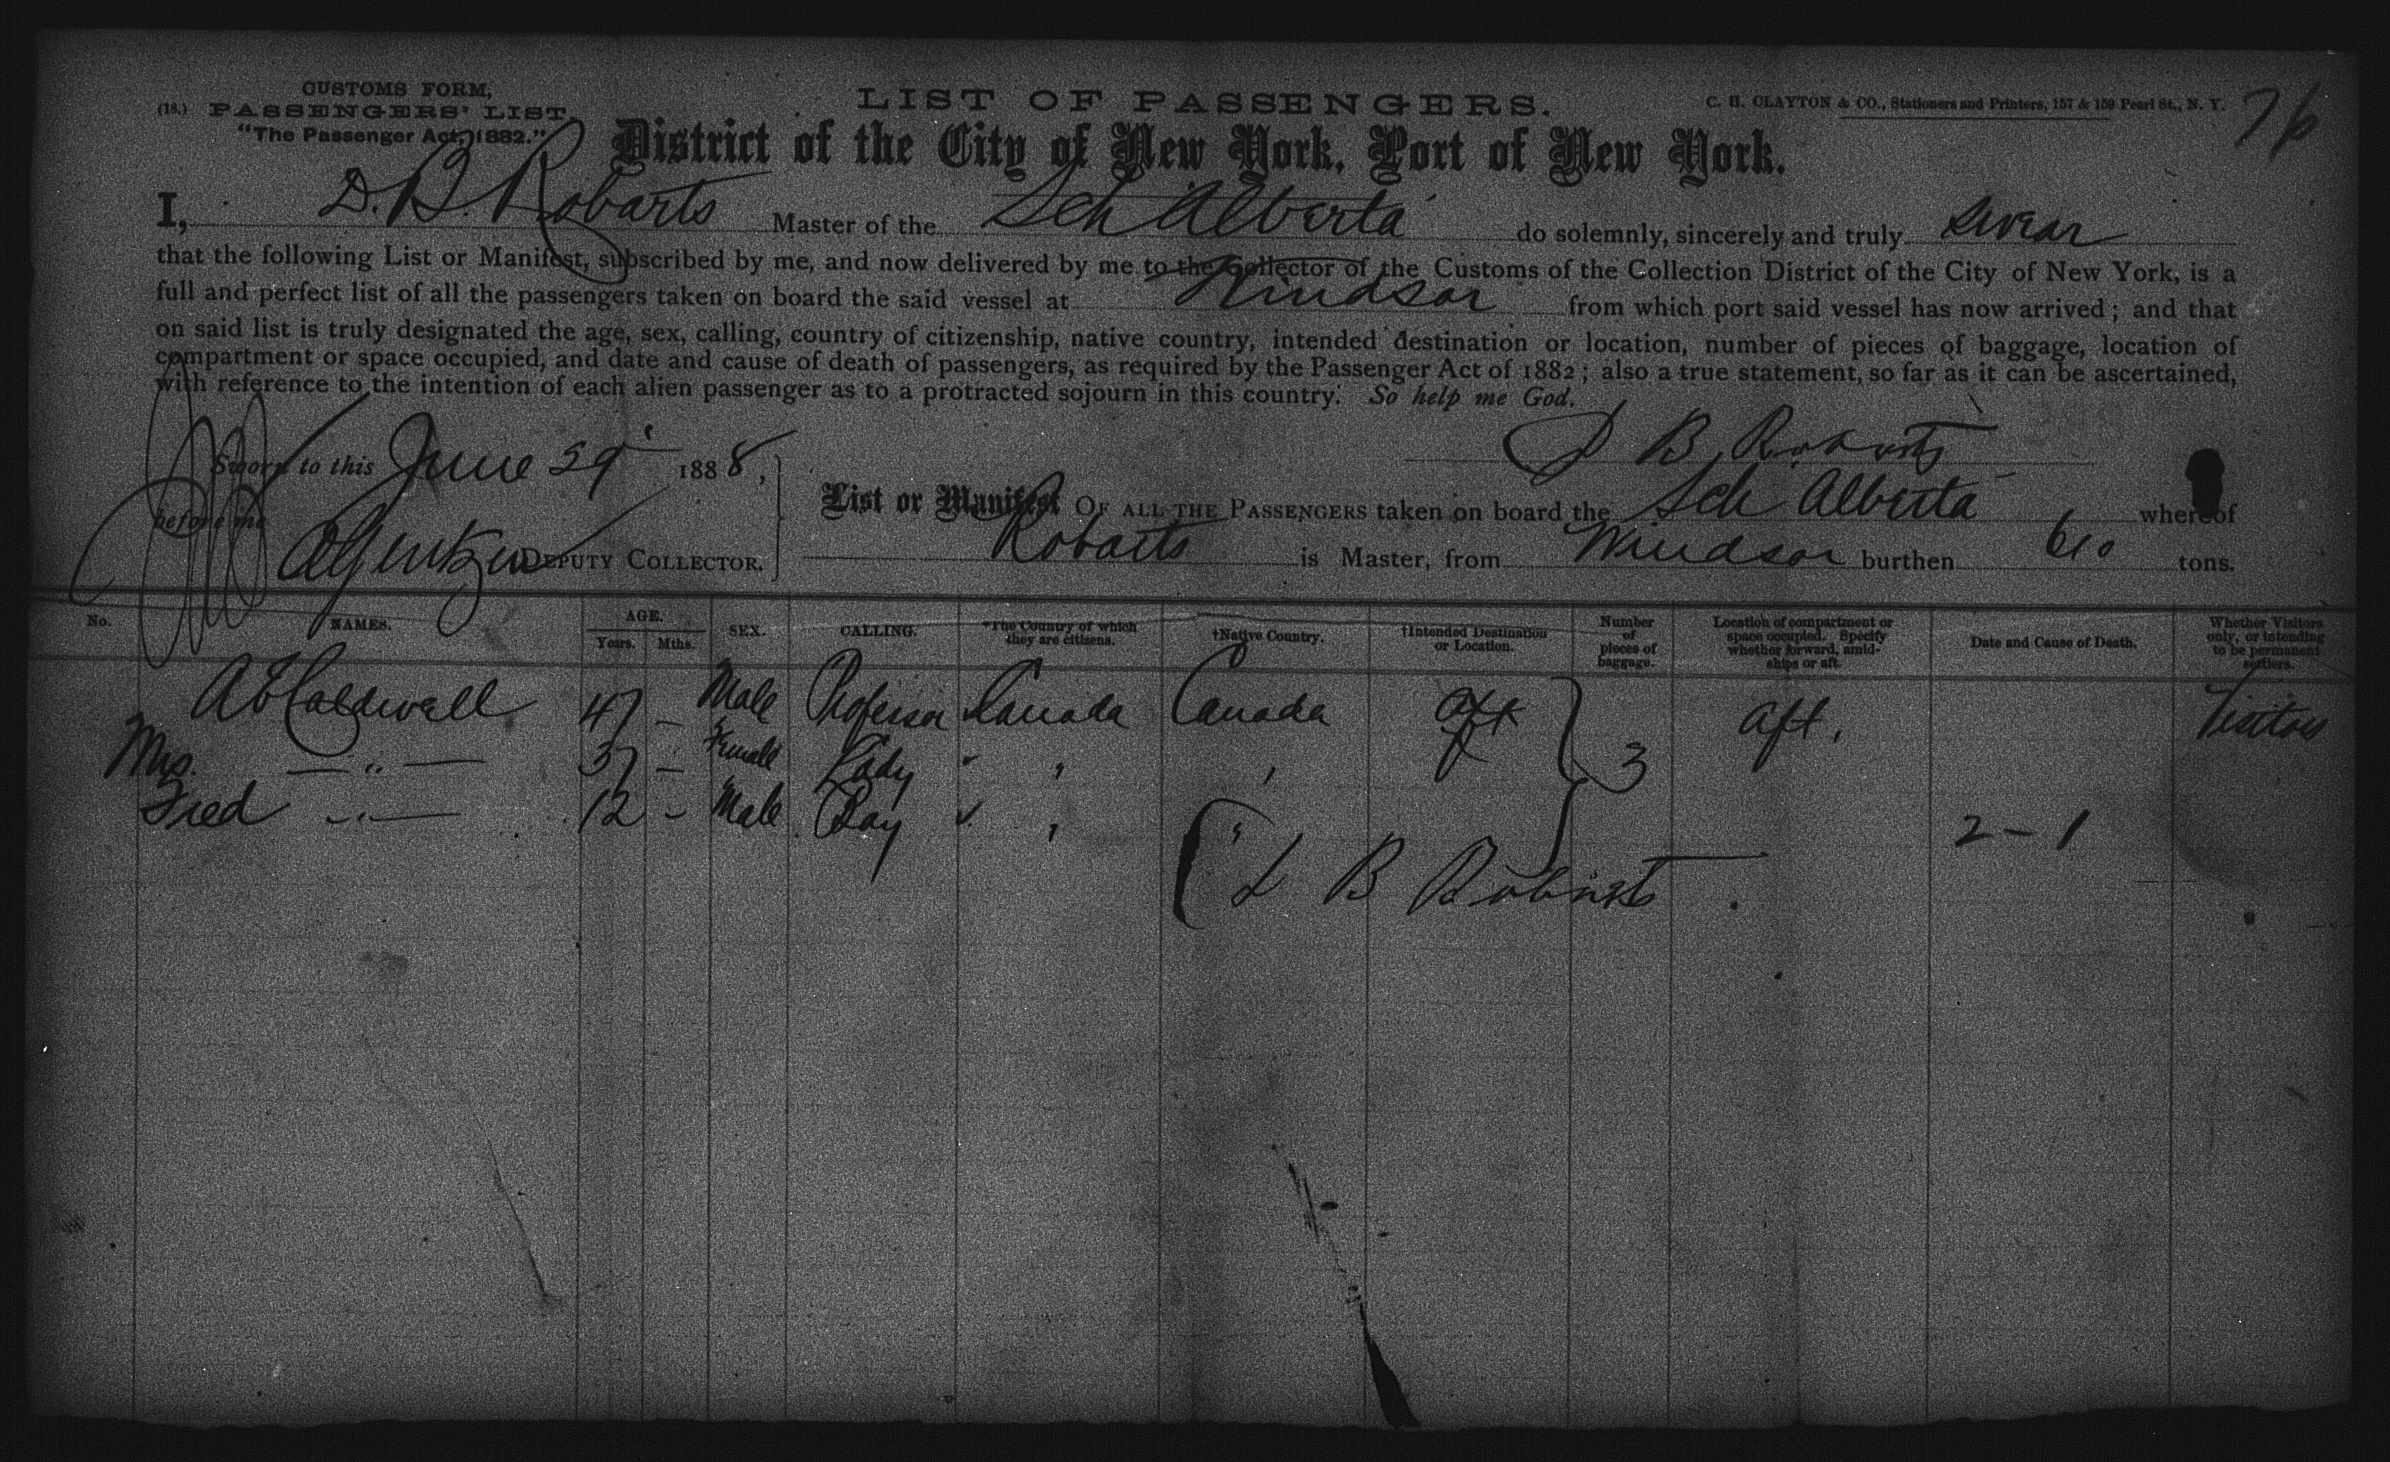 CUSTOMS FORM,
(18.) PASSENGERS' LIST.
"The Passenger Act, 1882."
LIST OF PASSENGERS.
C. H. CLAYTON & CO., Stationers and Printers, 157 & 159 Pearl St., N. Y.
76
District of the City of New York, Port of New York.
I, D. B. Robarts Master of the Sch Alberta do solemnly, sincerely and truly swear
that the following List or Manifest, subscribed by me, and now delivered by me to the Collector of the Customs of the Collection District of the City of New York, is a
full and perfect list of all the passengers taken on board the said vessel at Windsor from which port said vessel has now arrived; and that
on said list is truly designated the age, sex, calling, country of citizenship, native country, intended destination or location, number of pieces of baggage, location of
compartment or space occupied, and date and cause of death of passengers, as required by the Passenger Act of 1882; also a true statement, so far as it can be ascertained,
with reference to the intention of each alien passenger as to a protracted sojourn in this country. So help me God.
D B Robarts
Sworn to this June 29 1888,
before me
DEPUTY COLLECTOR.
List or Manifest OF ALL THE PASSENGERS taken on board the Sch Alberta whereof
Robarts is Master, from Windsor burthen 610 tons.
No. NAMES. AGE. Years. Mths. SEX. CALLING. *The Country of which they are citizens. †Native Country. †Intended Destination or Location. Number of pieces of baggage. Location of compartment or space occupied. Specify whether forward, amidships or aft. Date and Cause of Death. Whether Visitors only, or intending to be permanent settlers.
A E Caldwell 47 — Male Professor Canada Canada aft 3 aft. Visitors
Mrs. — " — 37 — Female Lady " " "
Fred - " — 12 - Male Boy " " "
2 - 1
D B Robarts